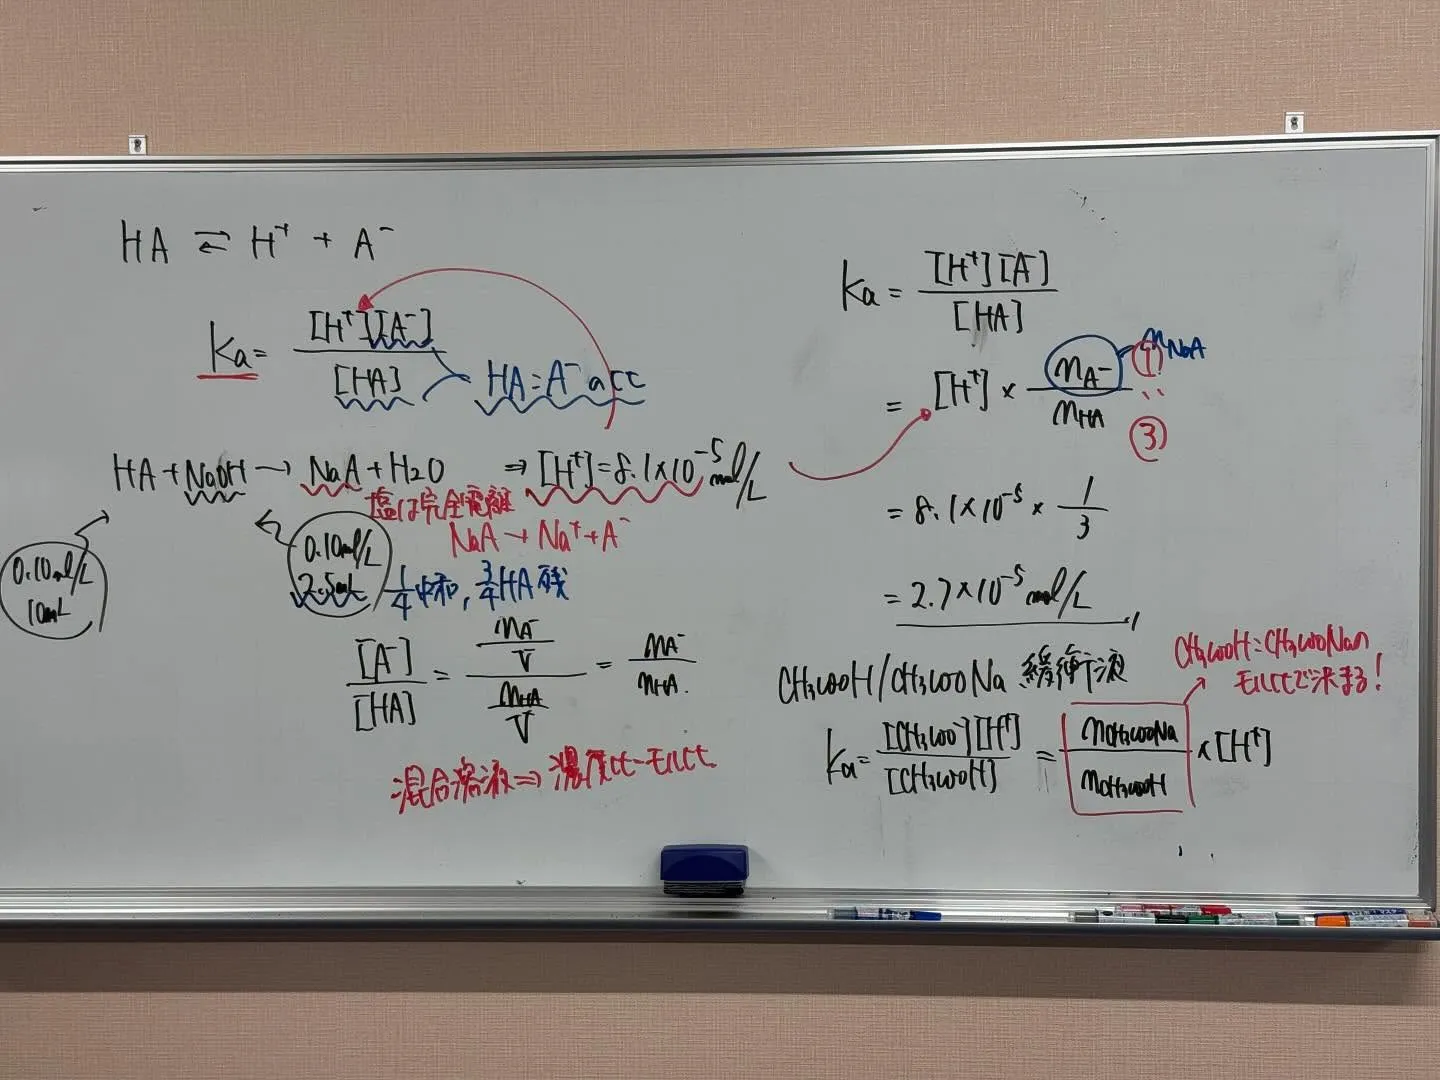 HA ⇄ H⁺ + A⁻
Ka = [H⁺][A⁻] / [HA]
HA:A⁻の比
HA + NaOH → NaA + H₂O ⇒ [H⁺] = 8.1×10⁻⁵ mol/L
塩は完全電離
NaA → Na⁺ + A⁻
0.10mol/L
10mL
0.10mol/L
2.5mL
1/4中和, 3/4HA残
[A⁻]/[HA] = (nA⁻/V)/(nHA/V) = nA⁻/nHA.
混合溶液⇒濃度比=モル比
Ka = [H⁺][A⁻]/[HA]
= [H⁺] × nA⁻/nHA
nNaA
①
:
③
= 8.1×10⁻⁵ × 1/3
= 2.7×10⁻⁵ mol/L
CH₃COOH/CH₃COONa 緩衝液
CH₃COOH:CH₃COONaの
モル比で決まる!
Ka = [CH₃COO⁻][H⁺]/[CH₃COOH] = nCH₃COONa/nCH₃COOH × [H⁺]